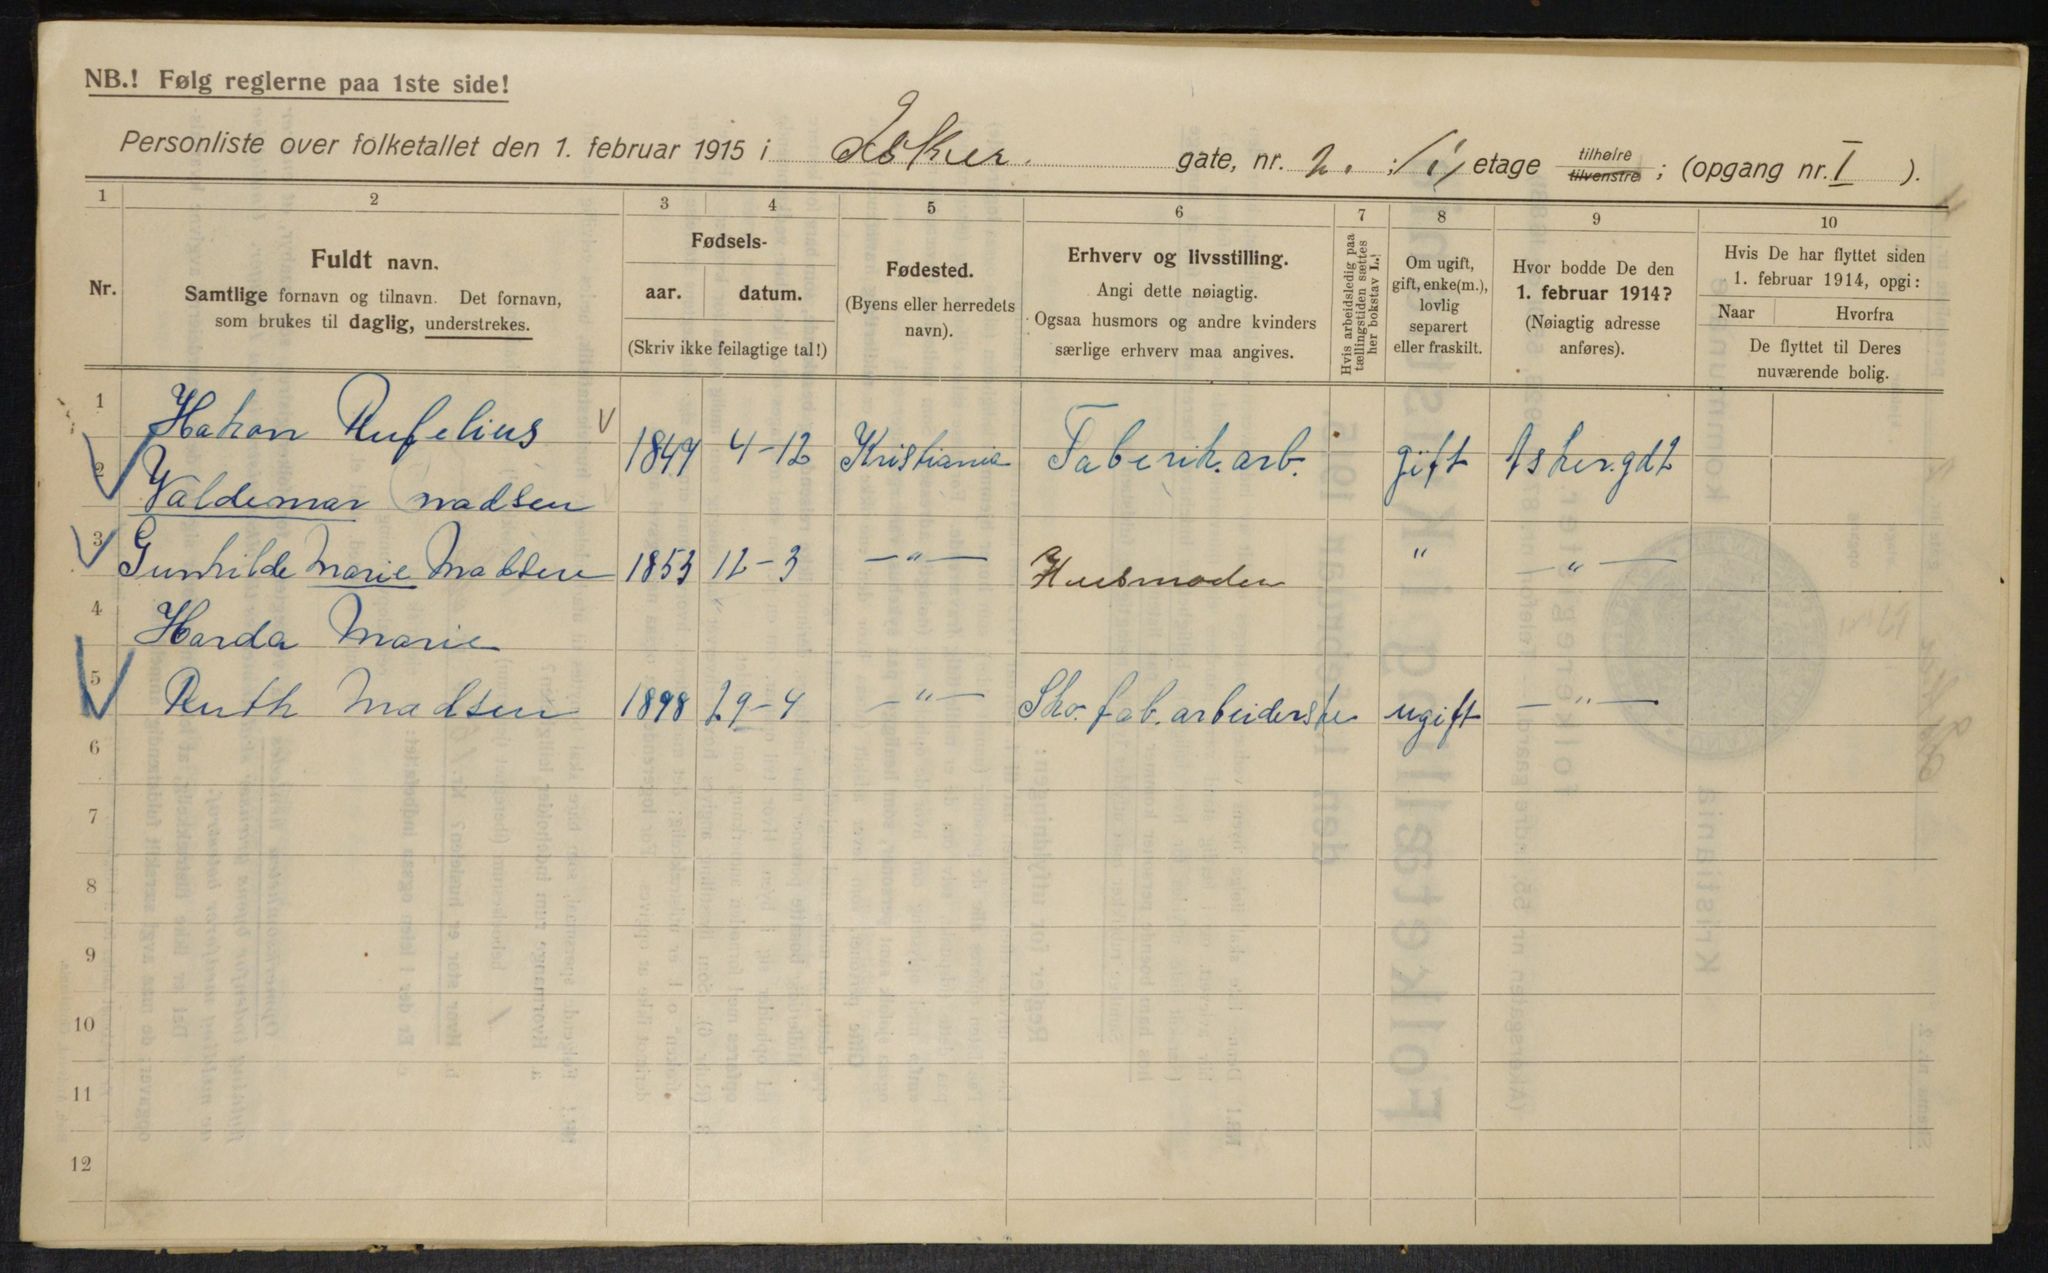 NB.! Følg reglerne paa 1ste side!
Personliste over folketallet den 1. februar 1915 i Asker gate, nr. 2. ; 1 etage tilhøire tilvenstre ; (opgang nr. I ).
1 2 3 4 5 6 7 8 9 10
Nr.
Fuldt navn.
Samtlige fornavn og tilnavn. Det fornavn,
som brukes til daglig, understrekes.
Fødsels-
aar. datum.
(Skriv ikke feilagtige tal!)
Fødested.
(Byens eller herredets
navn).
Erhverv og livsstilling.
Angi dette nøiagtig.
Ogsaa husmors og andre kvinders
særlige erhverv maa angives.
Hvis arbeidsledig paa
tællingstiden sættes
her bokstav L.!
Om ugift,
gift, enke(m.),
lovlig
separert
eller fraskilt.
Hvor bodde De den
1. februar 1914?
(Nøiagtig adresse
anføres).
Hvis De har flyttet siden
1. februar 1914, opgi:
Naar Hvorfra
De flyttet til Deres
nuværende bolig.
1 Hakon Rufelius
2 Valdemar Madsen 1847 4-12 Kristiania Faberik.arb. gift Askergdt 2
3 Gunhilde Marie Madsen 1853 12-3 —"— Husmoder " —"—
4 Harda Marie
5 Ruth Madsen 1898 29-4 —"— Sko.fab.arbeiderske ugift —"—
6
7
8
9
10
11
12